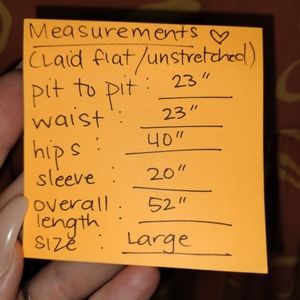 Measurements ♡
(Laid flat/unstretched)
pit to pit : 23"
waist : 23"
hips : 40"
sleeve : 20"
overall length : 52"
size : Large